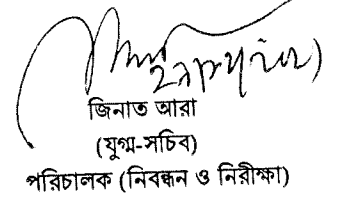 জিনাত আরা
(যুগ্ম-সচিব)
পরিচালক (নিবন্ধন ও নিরীক্ষা)